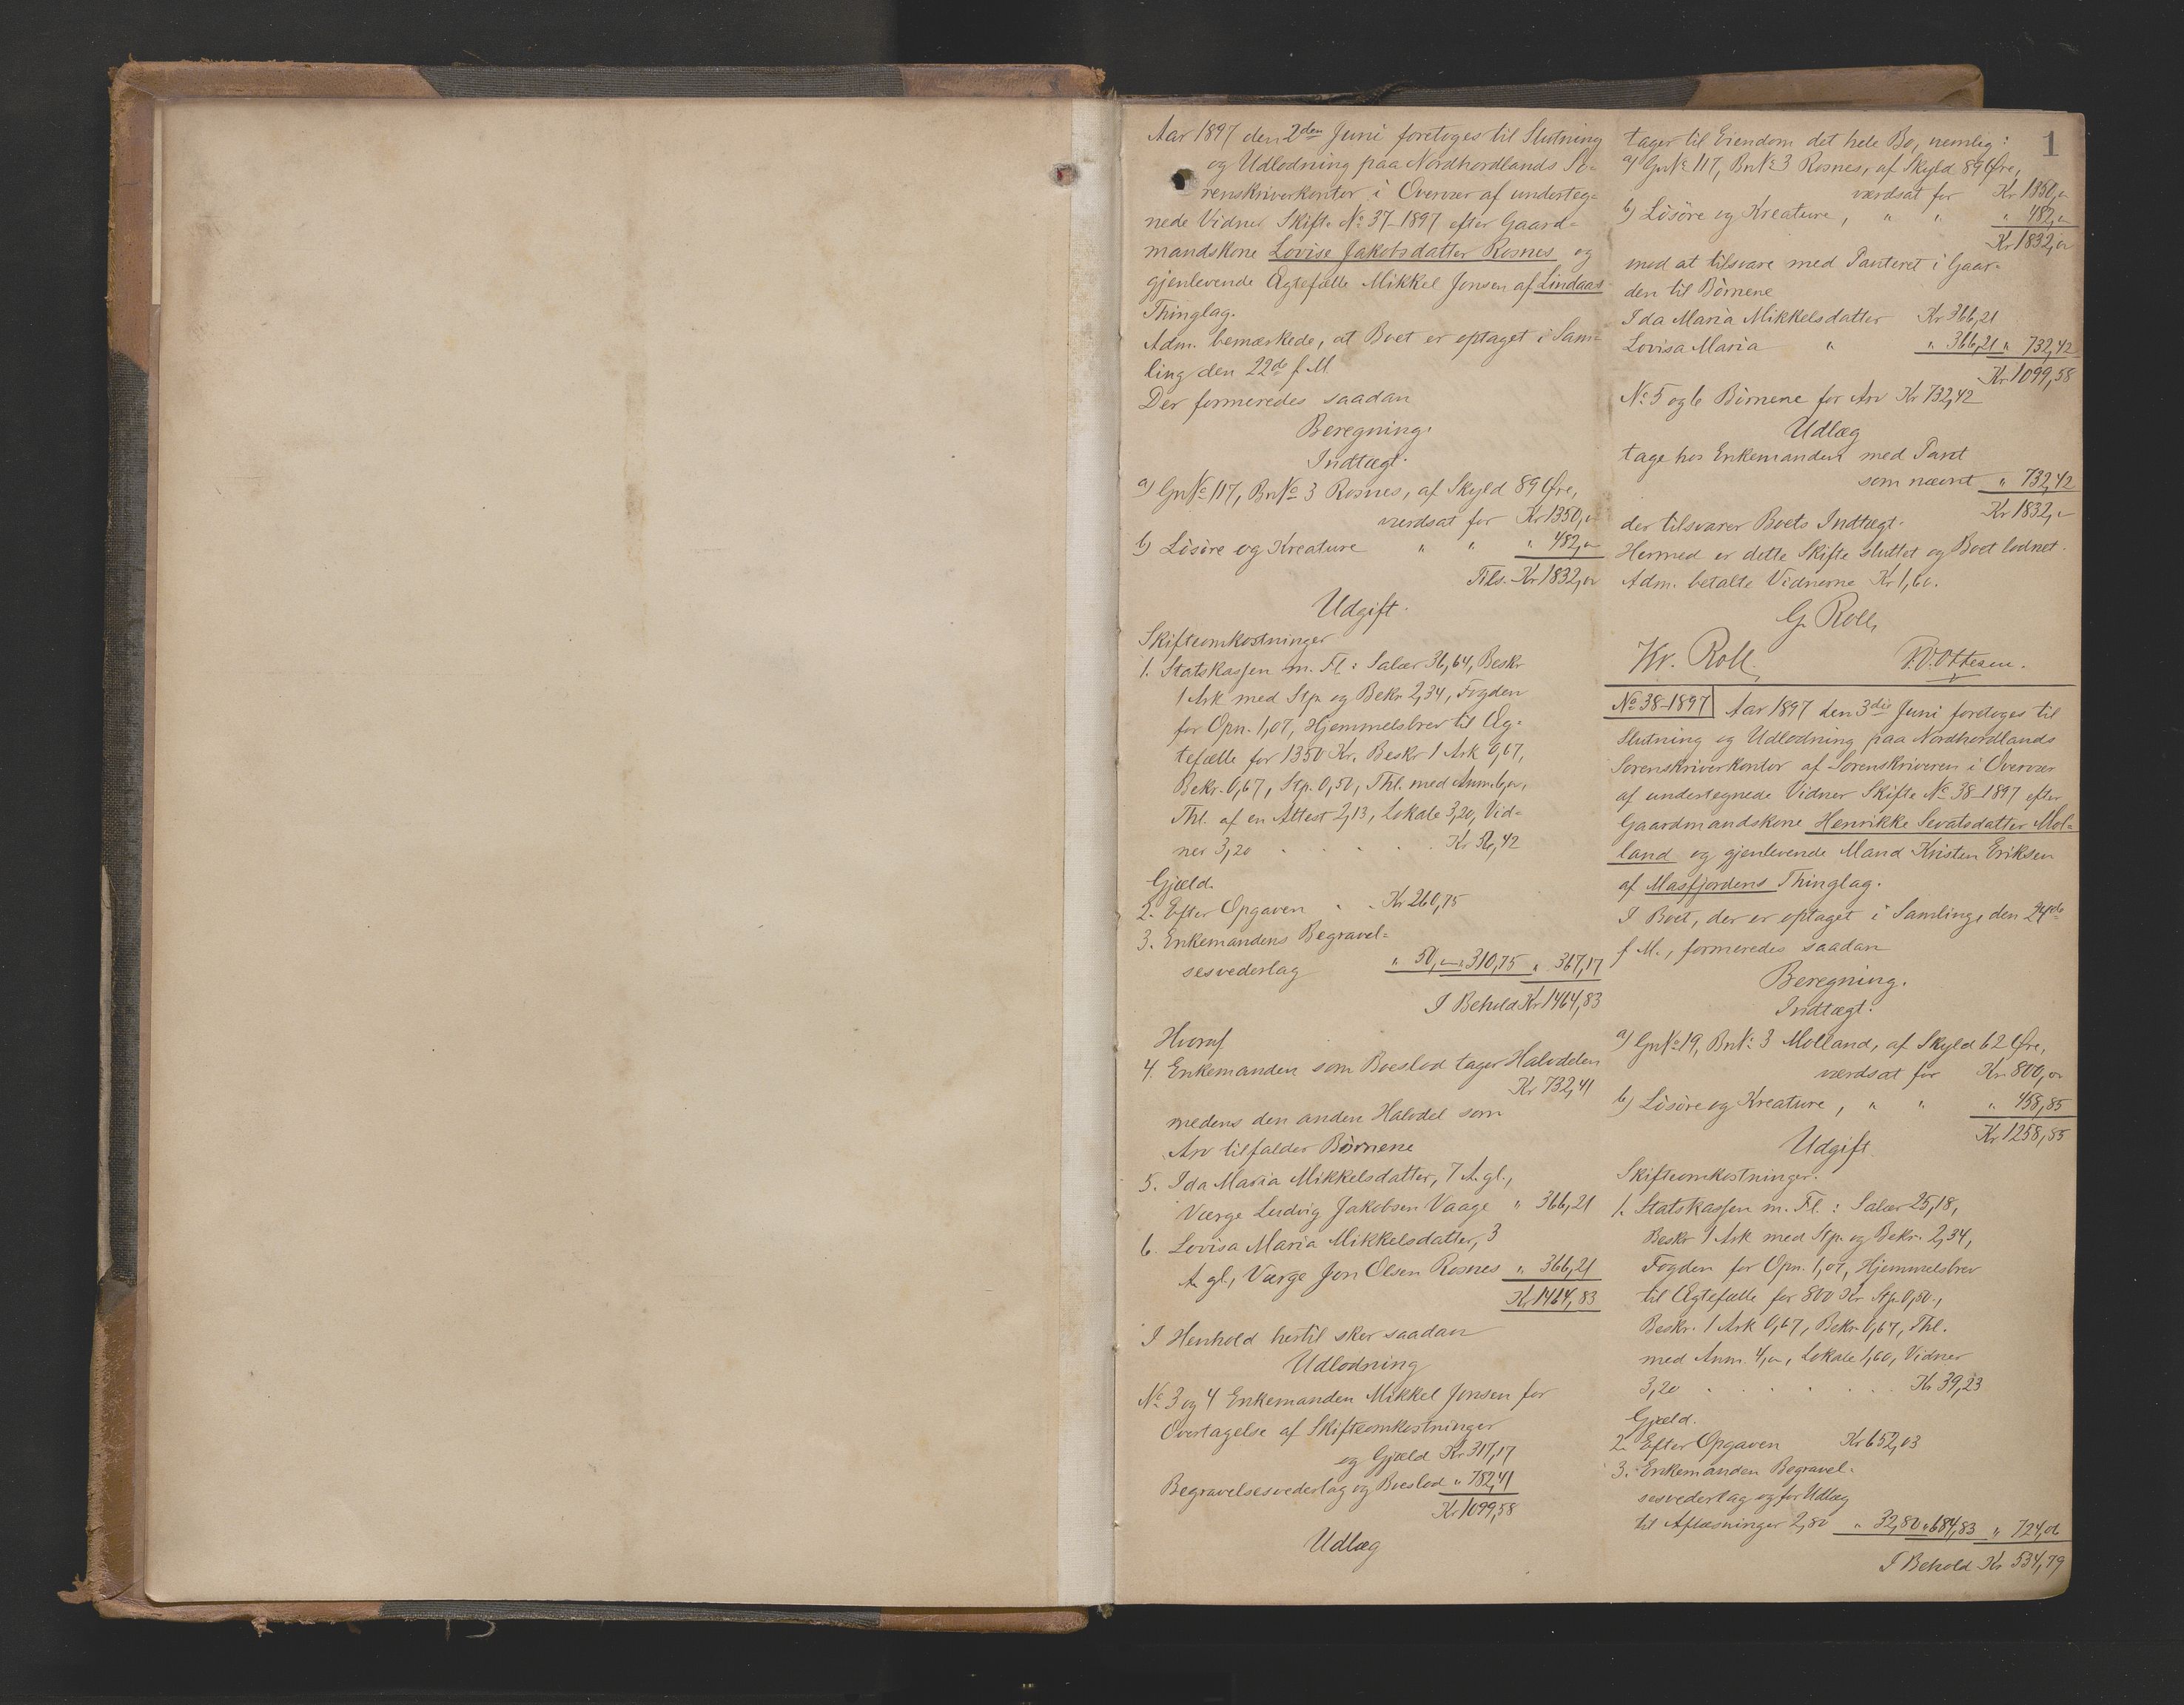 1
Aar 1897 den 2den Juni foretoges til Slutning
og Udlodning paa Nordhordlands So-
renskriverkontor i Overvær af underteg-
nede Vidner Skifte No 37-1897 efter Gaard-
mandskone Lovise Jakobsdatter Rosnes og
gjenlevende Ægtefælle Mikkel Jonsen af Lindaas
Thinglag.
Adm. bemærkede, at Boet er optaget i Sam-
ling den 22de f. M.
Der formeredes saadan
Beregning.
Indtægt.
a) GnNo 117, BnNo 3 Rosnes, af Skyld 89 Øre,
værdsat for Kr 1350,"
b) Løsøre og Kreature " " " 482,"
Tils. Kr 1832,"
Udgift.
Skifteomkostninger
1. Statskassen m. Fl.: Salær 36,64, Beskr
1 Ark med Stp. og Bekr 2,34, Fogden
for Opn. 1,07, Hjemmelsbrev til Æg-
tefælle for 1350 Kr. Beskr 1 Ark 0,67,
Bekr. 0,67, Stp. 0,50, Thl. med Anm. 6,",
Thl. af en Attest 2,13, Lokale 3,20, Vid-
ner 3,20 . . . . . Kr 56,42
Gjæld.
2. Efter Opgaven . . Kr 260,75
3. Enkemandens Begravel-
sesvederlag " 50," " 310,75 " 367,17
I Behold Kr 1464,83
Hvoraf
4. Enkemanden som Boeslod tager Halvdelen
Kr 732,41
medens den anden Halvdel som
Arv tilfalder Børnene
5. Ida Maria Mikkelsdatter, 7 A. gl.,
Værge Ludvig Jakobsen Vaage " 366,21
6. Lovisa Maria Mikkelsdatter, 3
A. gl., Værge Jon Olsen Rosnes " 366,21
Kr 1464,83
I Henhold hertil sker saadan
Udlodning
No 3 og 4 Enkemanden Mikkel Jonsen for
Overtagelse af Skifteomkostninger
og Gjæld Kr 317,17
Begravelsesvederlag og Boeslod " 782,41
Kr 1099,58
Udlæg
tager til Eiendom det hele Bo, nemlig:
a) GnNo 117, BnNo 3 Rosnes, af Skyld 89 Øre,
værdsat for Kr 1350,"
b) Løsøre og Kreature, " " " 482,"
Kr 1832,"
mod at tilsvare med Panteret i Gaar-
den til Børnene
Ida Maria Mikkelsdatter Kr 366,21
Lovisa Maria " " 366,21 " 732,42
Kr 1099,58
No 5 og 6 Børnene for Arv Kr 732,42
Udlæg
tage hos Enkemanden med Pant
som nævnt " 732,42
Kr 1832,"
der tilsvarer Boets Indtægt.
Hermed er dette Skifte sluttet og Boet lodnet.
Adm. betalte Vidnerne Kr 1,60.
G. Roll
Kr. Roll. Ottesen.
No 38-1897 Aar 1897 den 3die Juni foretoges til
Slutning og Udlodning paa Nordhordlands
Sorenskriverkontor af Sorenskriveren i Overvær
af undertegnede Vidner Skifte No 38-1897 efter
Gaardmandskone Henrikke Sevatsdatter Mol-
land og gjenlevende Mand Kristen Eriksen
af Masfjordens Thinglag.
I Boet, der er optaget i Samling den 24de
f. M., formeredes saadan
Beregning.
Indtægt.
a) GnNo 19, BnNo 3 Molland, af Skyld 62 Øre,
værdsat for Kr. 800,"
b) Løsøre og Kreature, " " " 458,85
Kr 1258,85
Udgift
Skifteomkostninger.
1. Statskassen m. Fl.: Salær 25,18,
Beskr 1 Ark med Stp. og Bekr. 2,34,
Fogden for Opn. 1,07, Hjemmelsbrev
til Ægtefælle for 800 Kr Stp. 0,50.,
Beskr. 1 Ark 0,67, Bekr. 0,67, Thl.
med Anm. 4,", Lokale 1,60, Vidner
3,20 . . . . . Kr 39,23
Gjæld.
2. Efter Opgaven Kr 652,03
3. Enkemanden Begravel-
sesvederlag og for Udlæg
til Aflæsninger 2,80 " 32,80 " 684,83 " 724,06
I Behold Kr 534,79